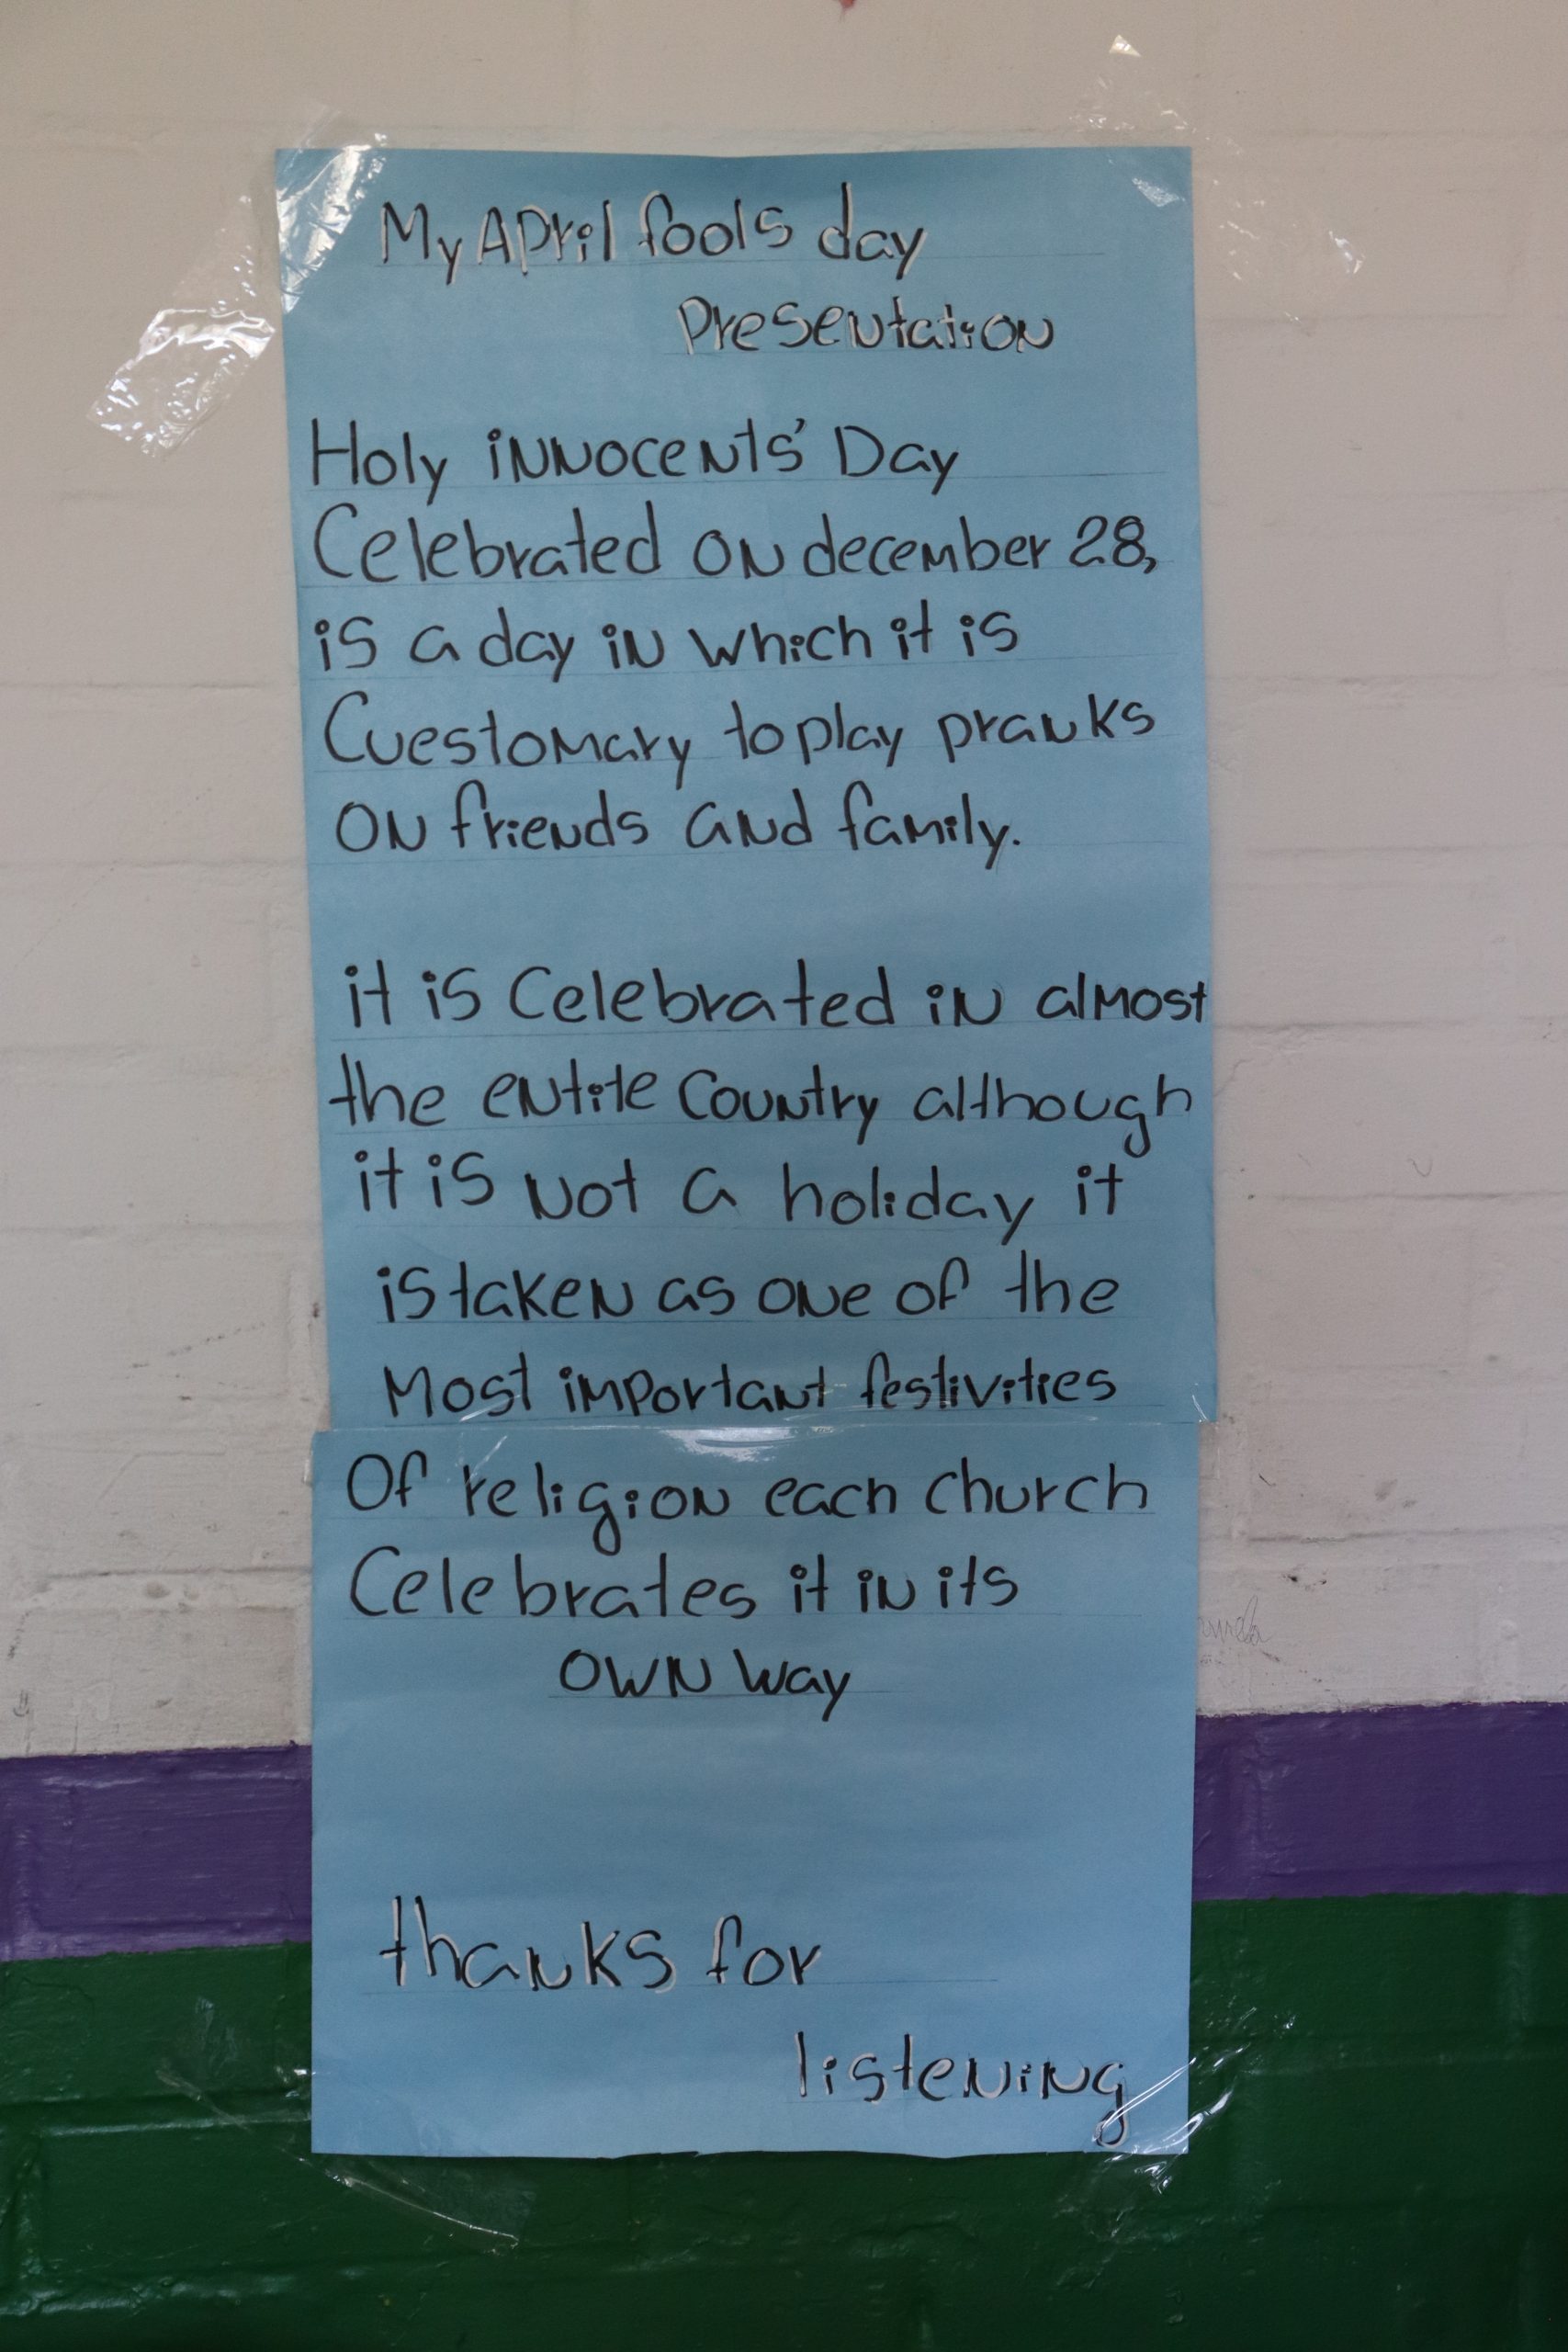 My APril fools day
PresentatioN
Holy iNNoceNts' Day
Celebrated ON december 28,
is a day iN which it is
Cuestomary to play pranks
ON friends and family.
it is Celebrated iN almost
the entite Country although
it is Not a holiday it
is taken as one of the
Most important festivities
Of religioN each church
Celebrates it iN its
OWN way
thanks for
listeNiNg